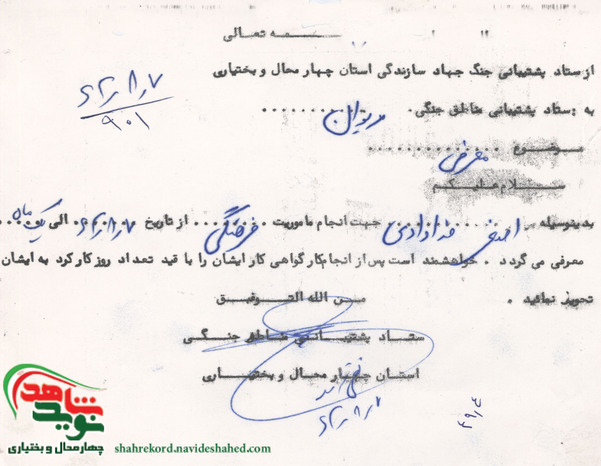 بسمه تعالی
از ستاد پشتیبانی جنگ جهاد سازندگی استان چهار محال و بختیاری
به : ستاد پشتیبانی مناطق جنگی. مریوان
موضوع معرفی
سلام علیکم
بدینوسیله جهت انجام ماموریت فرهنگی از تاریخ الی یک ماه
معرفی می گردد . خواهشمند است پس از انجام کار گواهی کار ایشان را با قید تعداد روز کارکرد به ایشان
تحویل نمائید .
من الله التوفیق
ستاد پشتیبانی مناطق جنگی
استان چهار محال و بختیاری
۹۰۱
نوید شاهد
چهارمحال و بختیاری
shahrekord.navideshahed.com